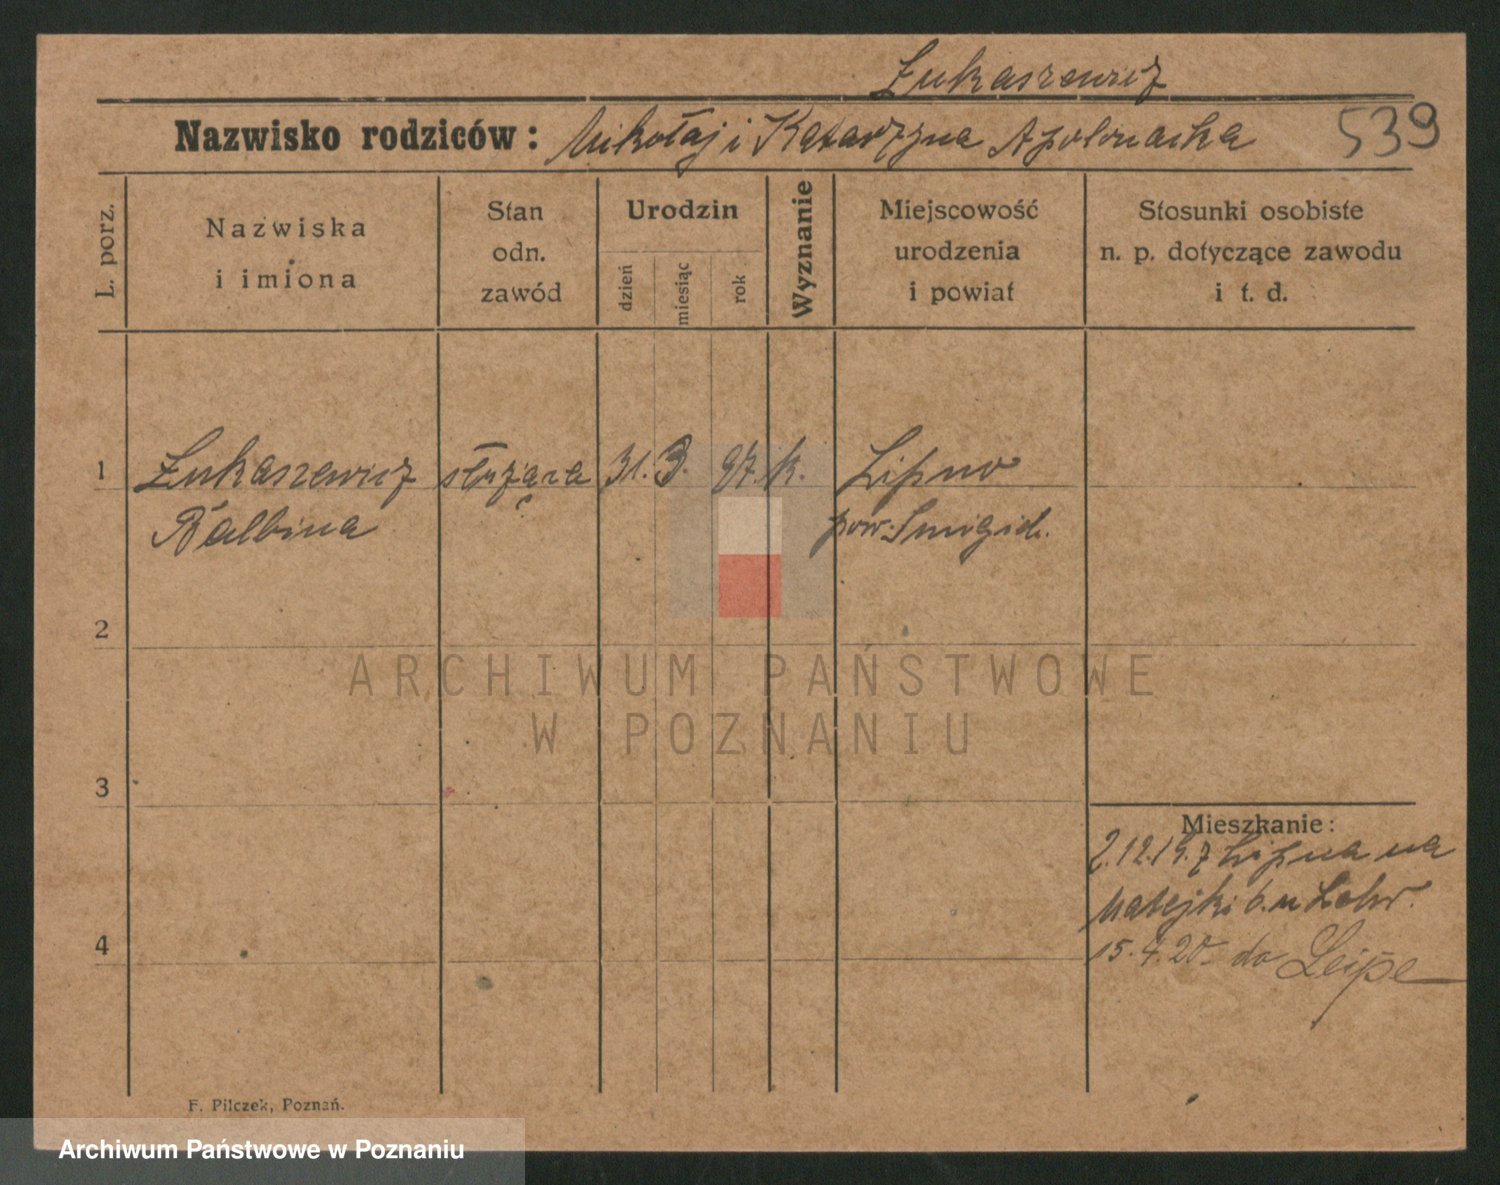 Łukaszewicz
Nazwisko rodziców: Mikołaj i Katarzyna Apolinarska 539
L. porz.
Nazwiska
i imiona
Stan
odn.
zawód
Urodzin
dzień
miesiąc
rok
Wyznanie
Miejscowość
urodzenia
i powiat
Stosunki osobiste
n. p. dotyczące zawodu
i t. d.
1 Łukaszewicz służąca 31. 3. 97. k. Lipno
Balbina pow. Śmigiel.
2
3
4
Mieszkanie:
2.12.19. z Lipna na
Matejki 6. u
15.4.20 do Leipe
F. Pilczek, Poznań.
ARCHIWUM PAŃSTWOWE
W POZNANIU
Archiwum Państwowe w Poznaniu